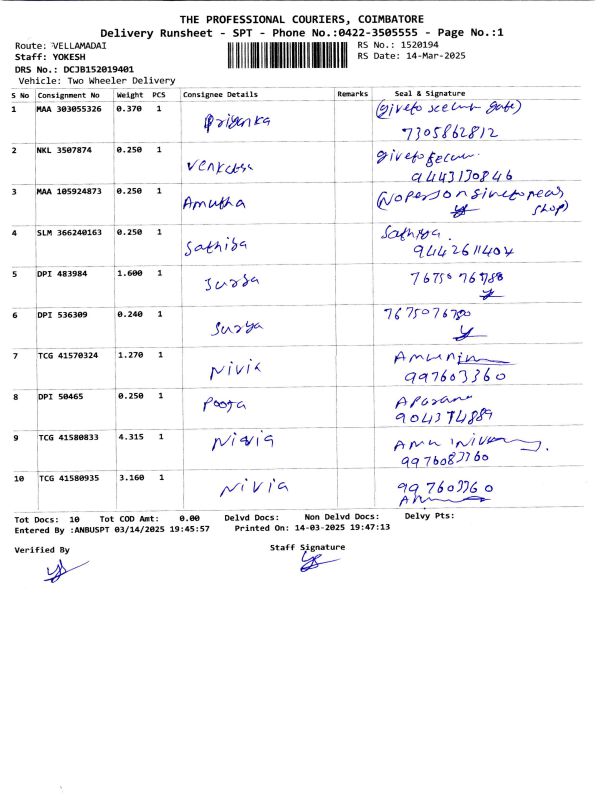 THE PROFESSIONAL COURIERS, COIMBATORE
Delivery Runsheet - SPT - Phone No.:0422-3505555 - Page No.:1
Route: VELLAMADAI RS No.: 1520194
Staff: YOKESH RS Date: 14-Mar-2025
DRS No.: DCJB152019401
Vehicle: Two Wheeler Delivery
S No Consignment No Weight PCS Consignee Details Remarks Seal & Signature
1 MAA 303055326 0.370 1 Priyanka (giveto
7305862812
2 NKL 3507874 0.250 1 giveto
9443130846
3 MAA 105924873 0.250 1 Amutha (No person giveto near
shop)
4 SLM 366240163 0.250 1 Sathiya Sathiya
9442611404
5 DPI 483984 1.600 1 Surya
6 DPI 536309 0.240 1 Surya
7 TCG 41570324 1.270 1 Nivia
997603360
8 DPI 50465 0.250 1 Pooja
904374889
9 TCG 41580833 4.315 1 Nivia
10 TCG 41580935 3.160 1 Nivia
Tot Docs: 10 Tot COD Amt: 0.00 Delvd Docs: Non Delvd Docs: Delvy Pts:
Entered By :ANBUSPT 03/14/2025 19:45:57 Printed On: 14-03-2025 19:47:13
Verified By Staff Signature